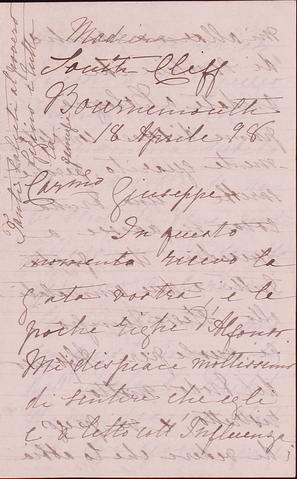 Madeira
South Cliff
Bournemouth
18 Aprile 98
Carmo Giuseppe
In questo
momento ricevo la
grata vostra, e le
poche righe d'Alfonso
Mi dispiace moltissimo
di sentire che egli
è a letto coll' Influenza